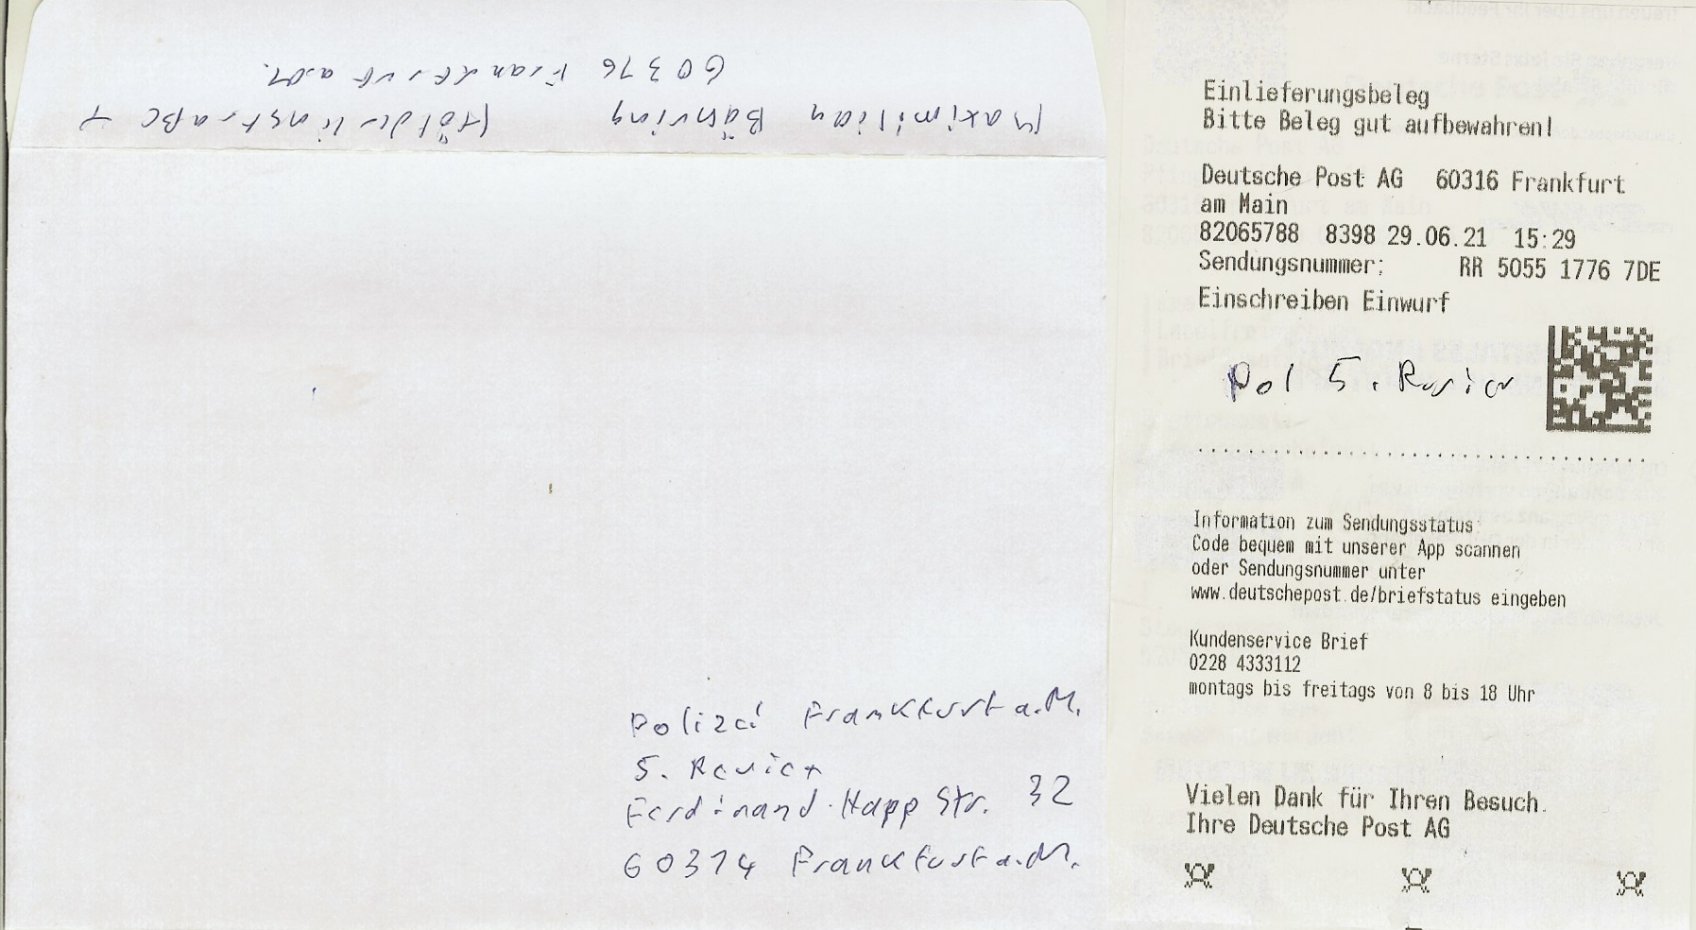 Maximilian Bähring Hölderlinstraße 4
60316 Frankfurt a.M.
Polizei Frankfurt a.M.
5. Revier
Ferdinand-Happ Str. 32
60314 Frankfurt a.M.
Einlieferungsbeleg
Bitte Beleg gut aufbewahren!
Deutsche Post AG 60316 Frankfurt
am Main
82065788 8398 29.06.21 15:29
Sendungsnummer: RR 5055 1776 7DE
Einschreiben Einwurf
Pol 5. Revier
Information zum Sendungsstatus:
Code bequem mit unserer App scannen
oder Sendungsnummer unter
www.deutschepost.de/briefstatus eingeben
Kundenservice Brief
0228 4333112
montags bis freitags von 8 bis 18 Uhr
Vielen Dank für Ihren Besuch.
Ihre Deutsche Post AG